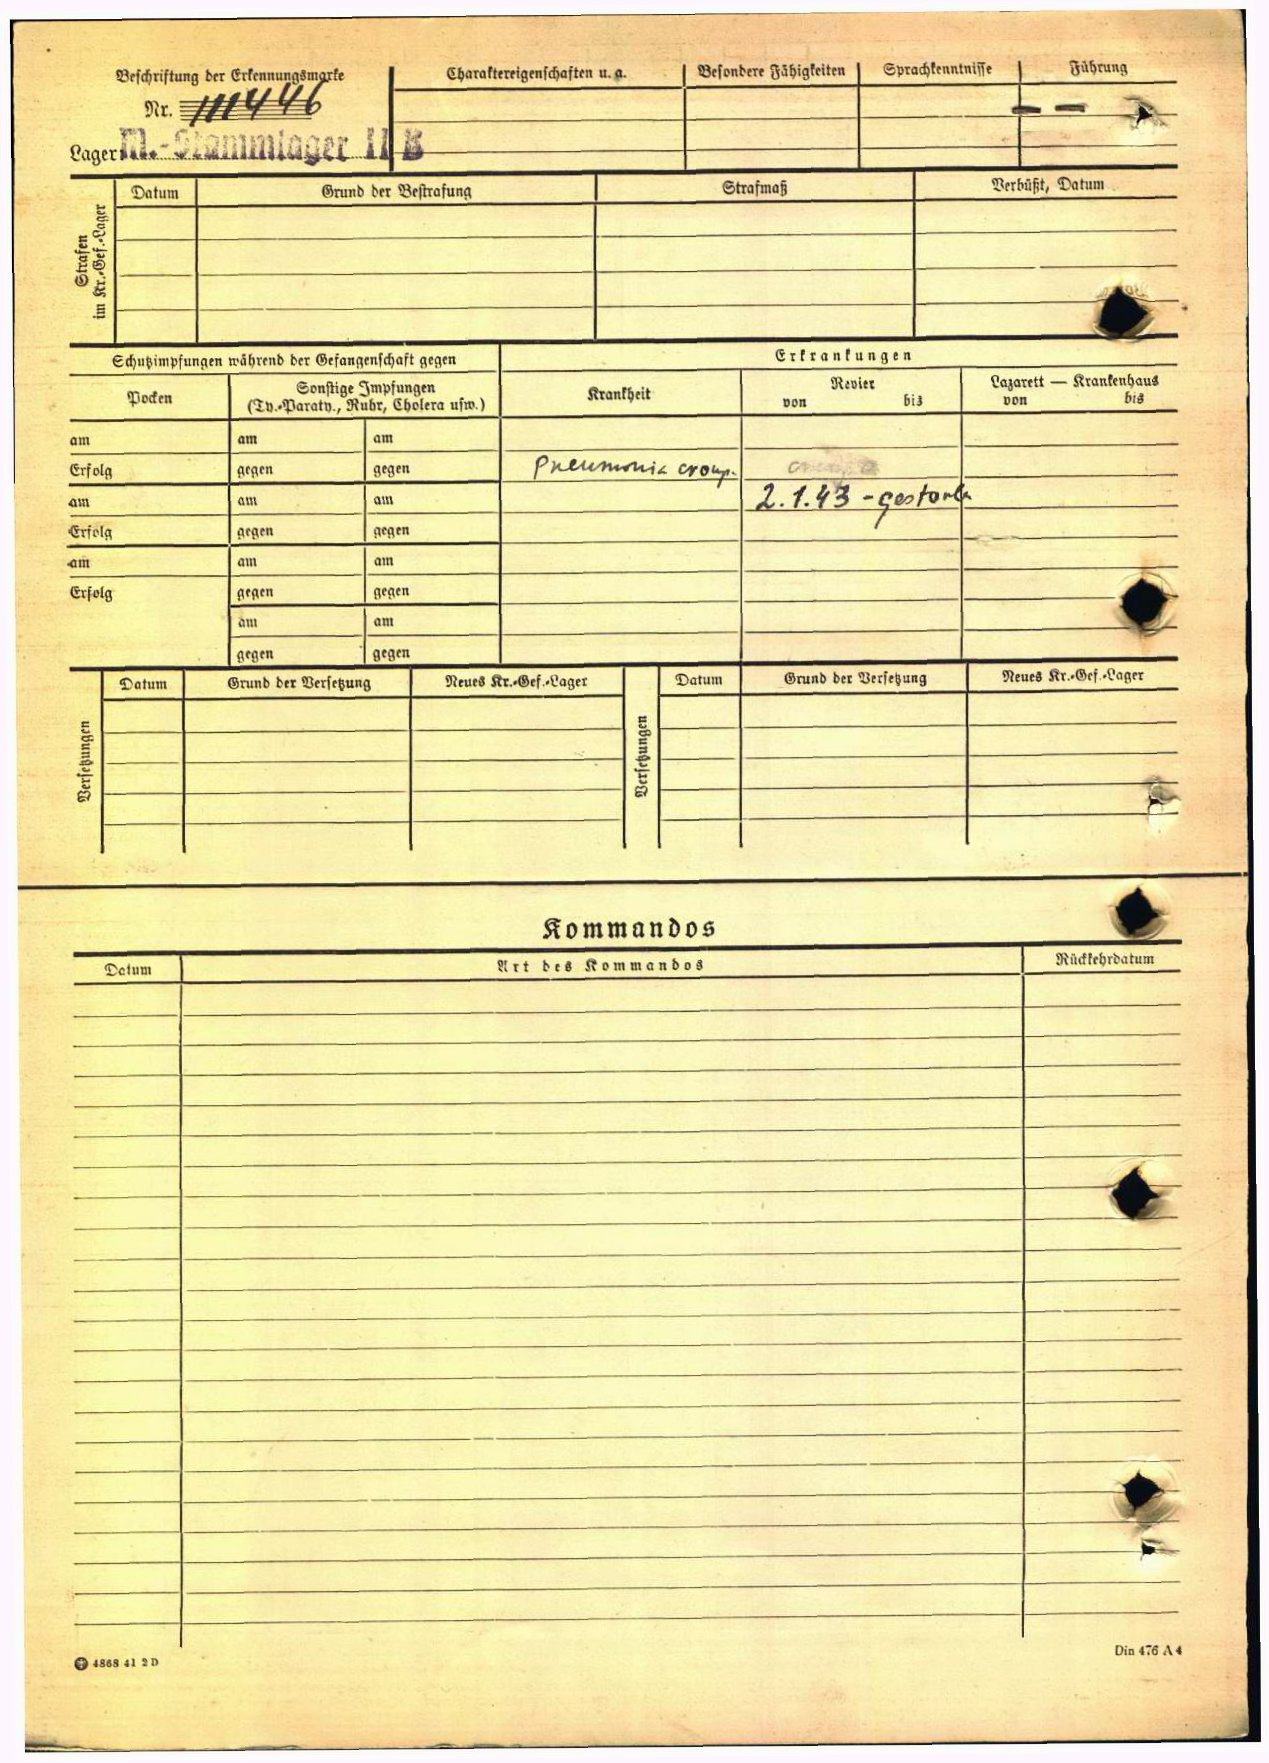 Beschriftung der Erkennungsmarke
Nr. 111446
Lager: M.-Stammlager II B
Charaktereigenschaften u. a.
Besondere Fähigkeiten
Sprachkenntnisse
Führung
— —
Strafen im Kr.-Gef.-Lager
Datum Grund der Bestrafung Strafmaß Verbüßt, Datum
Schutzimpfungen während der Gefangenschaft gegen
Erkrankungen
Pocken
Sonstige Impfungen
(Ty.-Paraty., Ruhr, Cholera usw.)
Krankheit
Revier
von bis
Lazarett — Krankenhaus
von bis
am am am
Erfolg gegen gegen Pneumonia croup.
am am am 2.1.43 - gestorb
Erfolg gegen gegen
am am am
Erfolg gegen gegen
am am
gegen gegen
Versetzungen
Datum Grund der Versetzung Neues Kr.-Gef.-Lager
Versetzungen
Datum Grund der Versetzung Neues Kr.-Gef.-Lager
Kommandos
Datum Art des Kommandos Rückkehrdatum
4868 41 2 D
Din 476 A 4